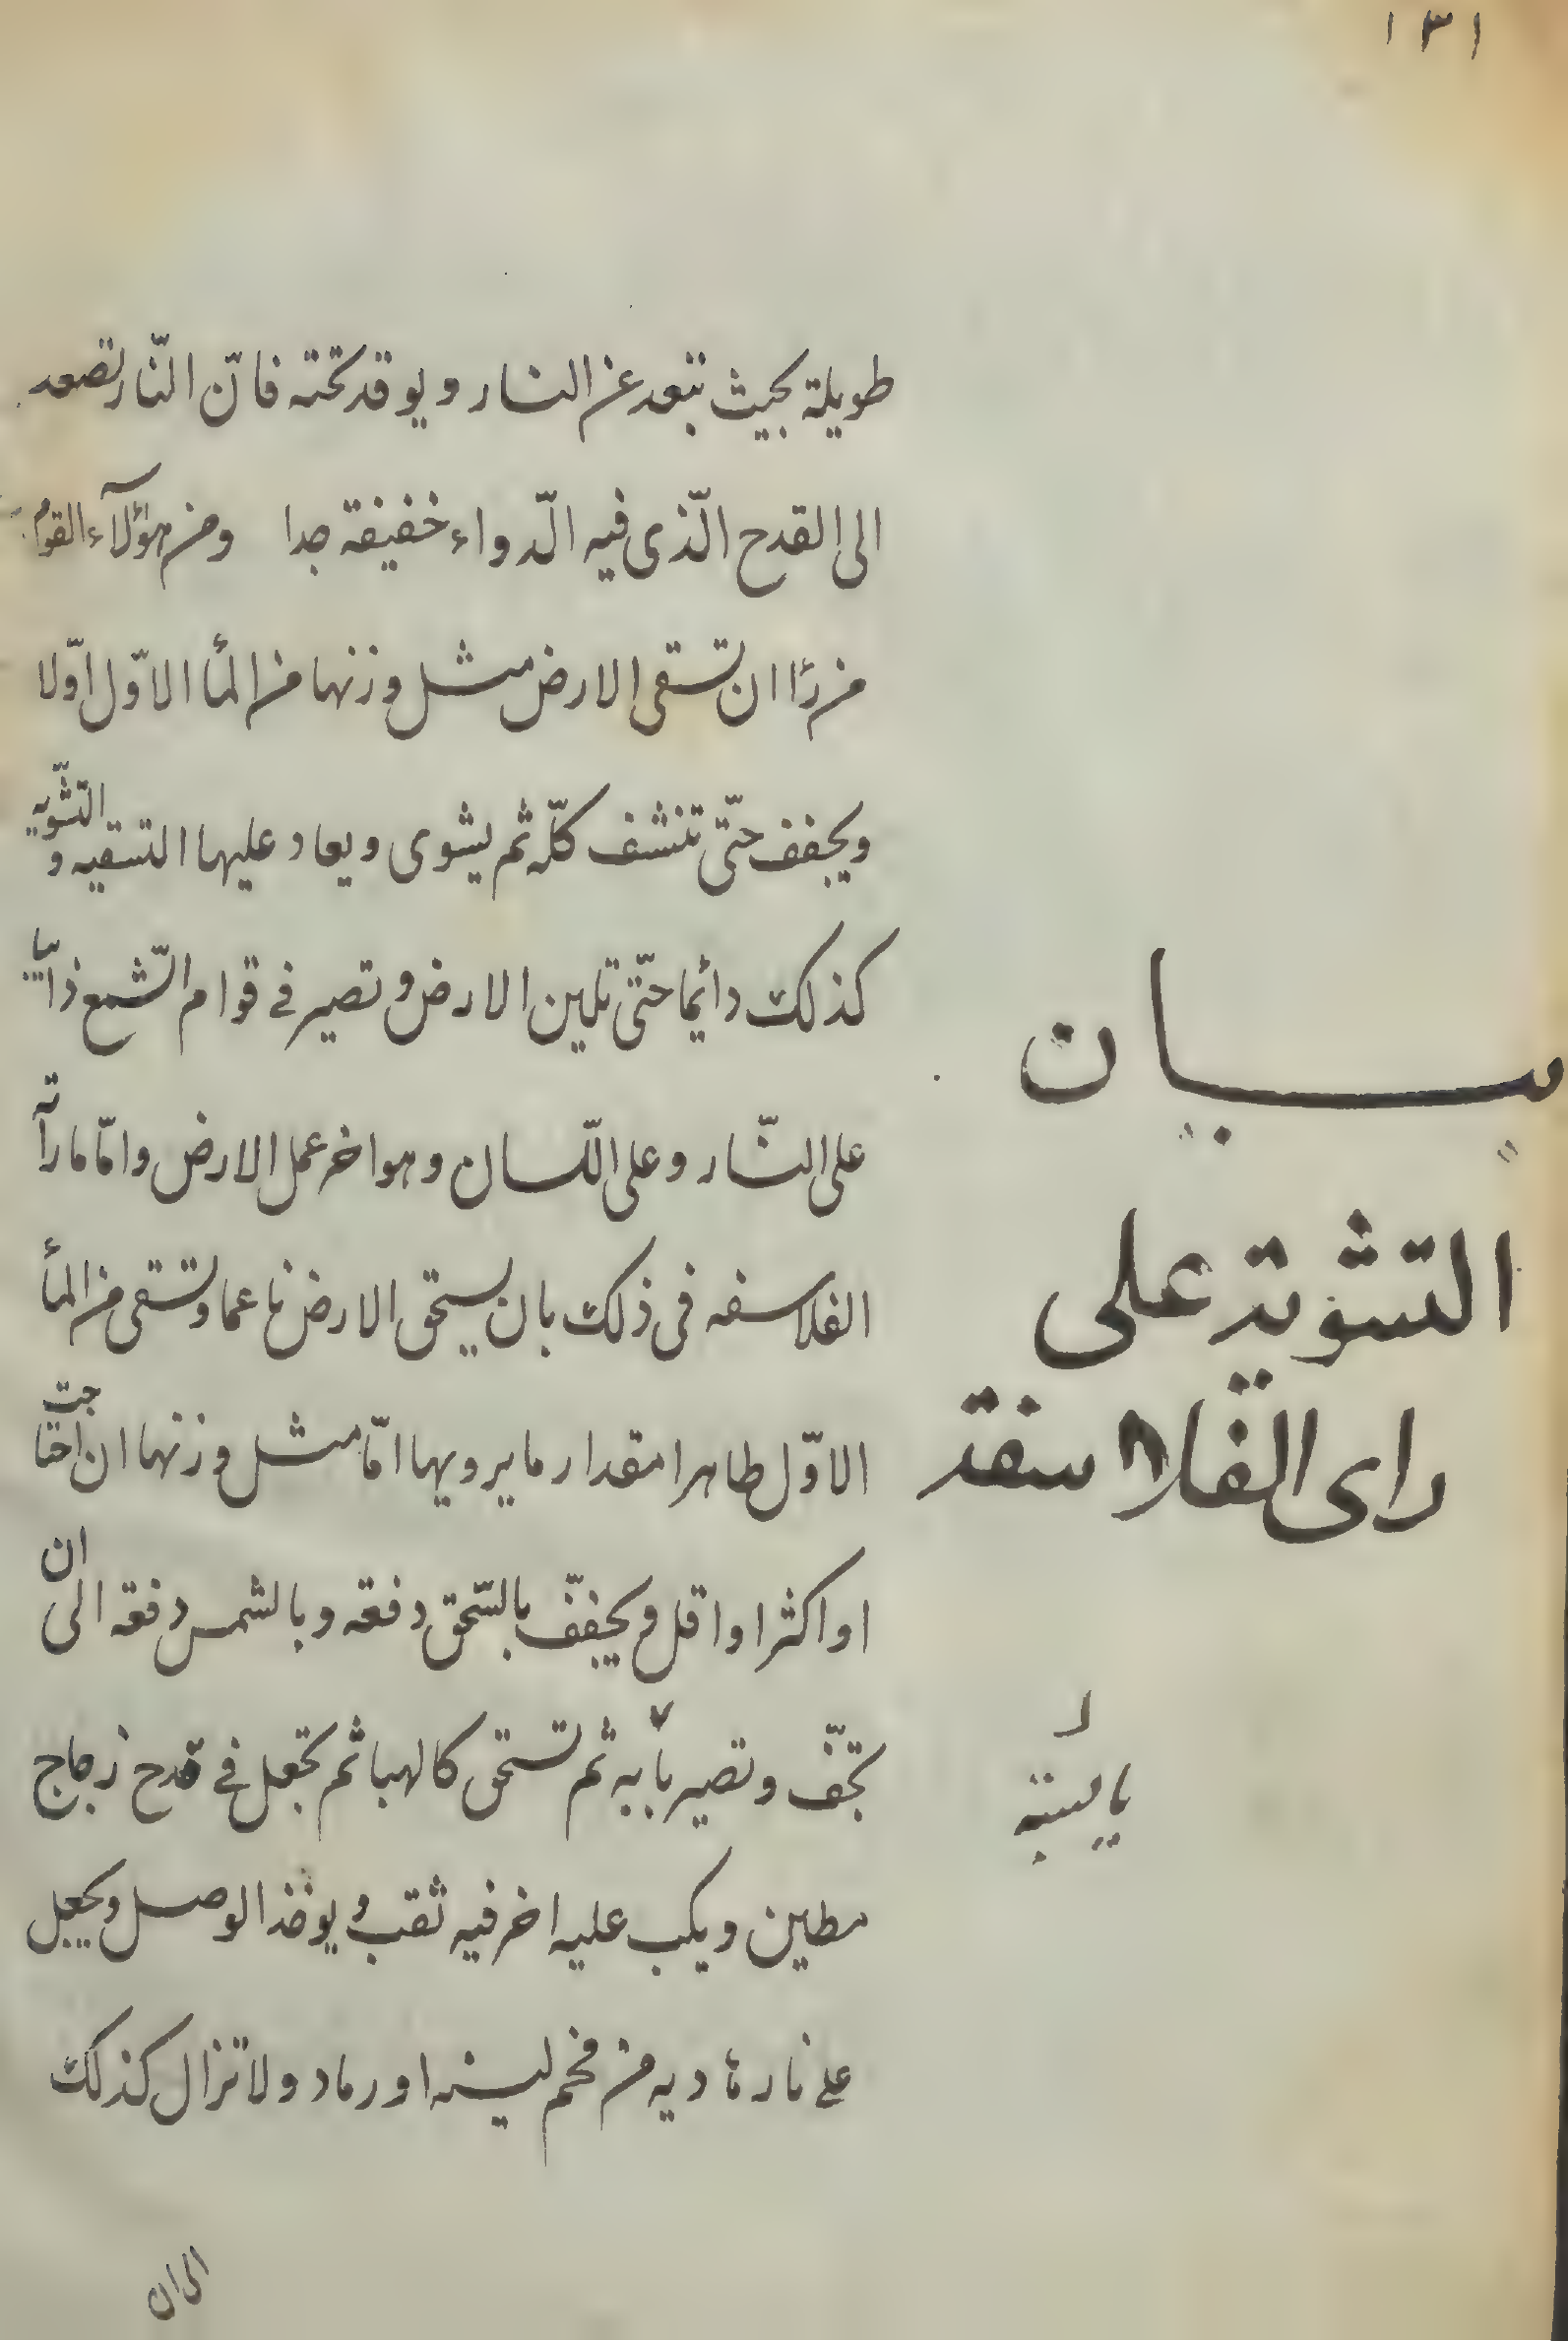 ١٣١
طويلة بحيث تبعد عن النار ويوقد تحته فانّ النّار تصعد
الى القدح الّذى فيه الّدواء خفيفة جدا ومن هؤلآء القوم
من رًا ان تسقى الارض مثل وزنها من المأ الاوّل اوّلا
ويجفف حتّى تنشف كلّه ثم يشوى ويعاد عليها التسقيه والتشّويه
كذلك دائما حتّى تلين الارض وتصير فى قوام الشّمع ذائبا
على النّار وعلى اللّسان وهو اخر عمل الارض وامّا ما رآة
الفلاسفه فى ذلك بان يسحق الارض ناعما وتسقى من المأ
الاوّل طاهرا مقدار ما يرويها امّا مثل وزنها ان احتاجت
او اكثر او اقل ويجففّ بالسّحق دفعه وبالشمس دفعه الى ان
تجفّ وتصير يأبه ثم تسحق كالهبا ثم تجعل فى قدح زجاج
مطين ويكب عليه اخر فيه ثقب ويوخذ الوصل ويجعل
على نار هاديه من فحم لينه او رماد ولا تزال كذلك
بيان
التشوية على
راى الفلاسفة
يابسة
الى ان